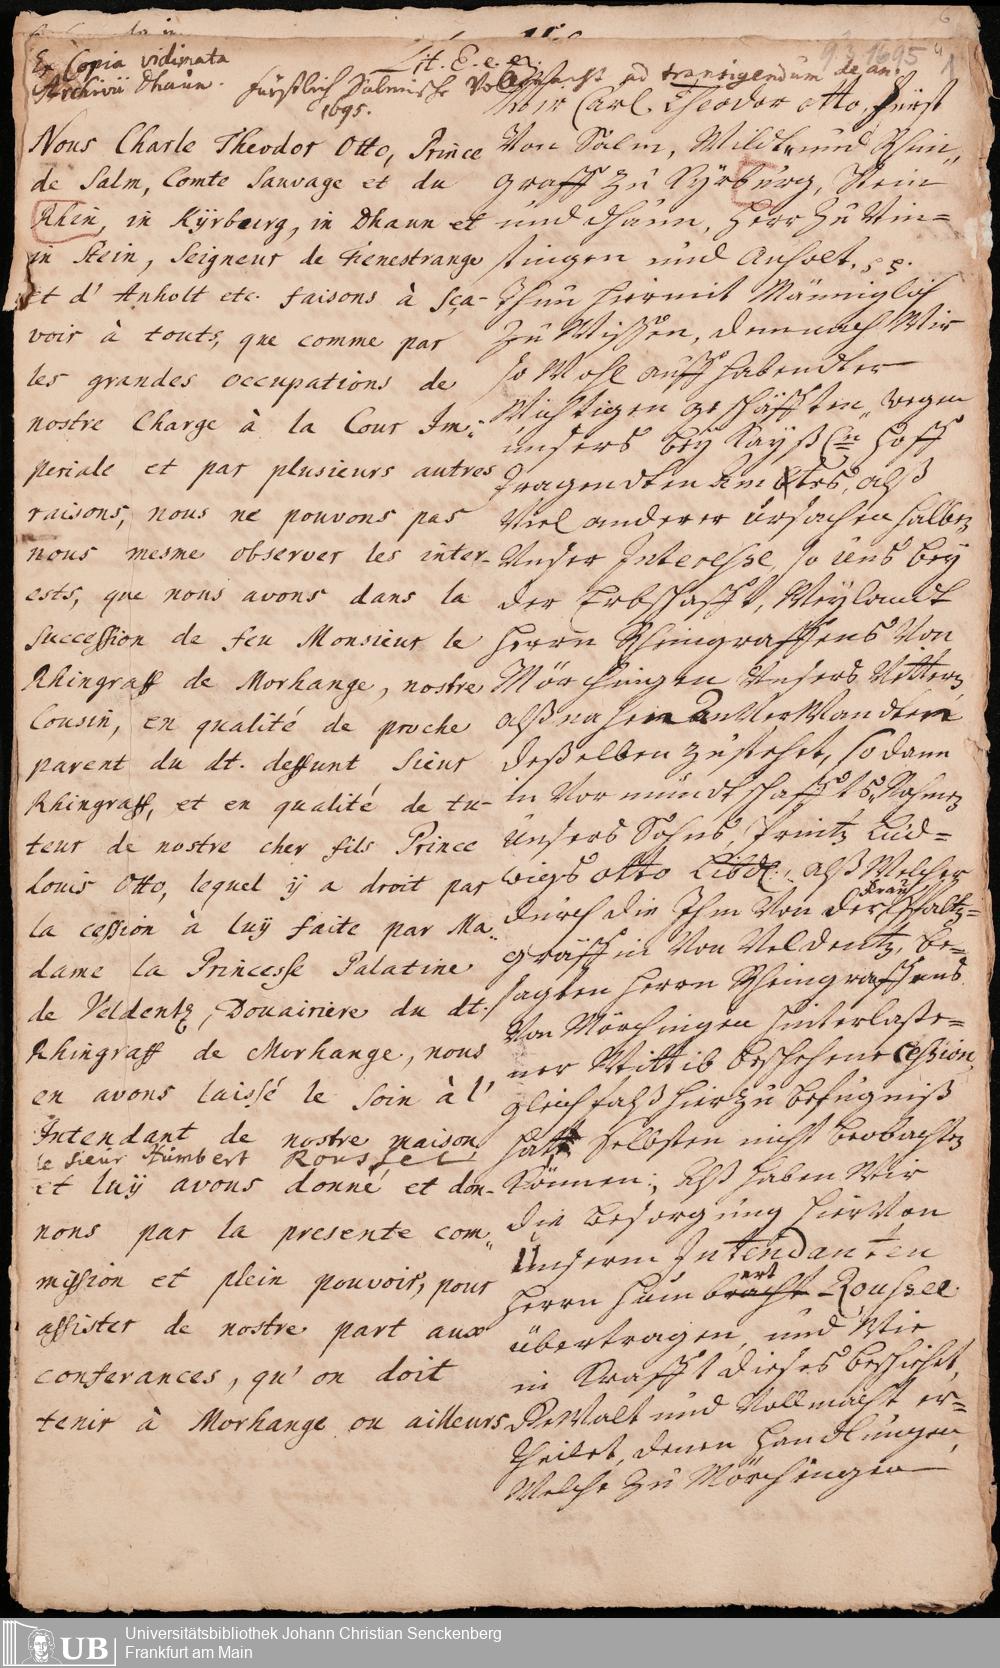 Ex Copia vidimata
Archivii Dhaun.
Lit. E. e. e.
93. 1695
Fürstlich Salmische Vollmacht ad transigendum de an:
1695.
Nous Charle Theodor Otto, Prince
de Salm, Comte Sauvage et du
Rhin, in Kÿrbourg, in Dhaun et
in Stein, Seigneur de Fenestrange
et d' Anholt etc. faisons à sça-
voir à touts, que comme par
les grandes occupations de
nostre Charge à la Cour Im-
periale et par plusieurs autres
raisons, nous ne pouvons pas
nous mesme observer les inter-
ests, que nous avons dans la
succession de feu Monsieur le
Rhingraff de Morhange, nostre
Cousin, en qualité de proche
parent du dt. deffunt Sieur
Rhingraff, et en qualité de tu-
teur de nostre cher fils Prince
Louis Otto, lequel ÿ a droit par
la cession à luÿ faite par Ma-
dame la Princesse Palatine
de Veldentz, Douairiere du dt.
Rhingraff de Morhange, nous
en avons laissé le soin à l'
Intendant de nostre maison
le Sieur Humbert Roussel
et luÿ avons donné et don-
nons par la presente com-
mission et plein pouvoir, pour
assister de nostre part aux
conferances, qu' on doit
tenir à Morhange ou ailleurs
Wir Carl Theodor Otto, Fürst
Von Salm, Wildt- und Rhein-
graff zu Kÿrburg, Stein
und Dhaun, Herr zu Vin-
stingen und Anholt.
Thun hiermit Männiglich
Zu Wissen, demnach Wir
so Wohl auff habendter
Wichtigen geschäfften, wegen
unsers beÿ Kaÿßln hoff
tragendten Ambtes, alß
Viel anderer ursachen halber
Unser Interesse, so uns beÿ
der Erbschafft, Weÿlandt
Herrn Rheingraffens Von
Mörchingen Unsers Vetters
alß nahen Anverwandten
deßelben zustehet, so dann
in Vormundtschaffts Nahmen
Unsers Sohns, Printz Lud-
wigs Otto Libd. alß Welcher
durch die Ihm Von der Frau Pfaltz-
gräffin Von Veldentz, be-
sagten Herrn Rheingraffens
Von Mörchingen hinterlaße-
ner Wittib beschehene Cession
gleichfalß hierzu befugniß
hatt selbsten nicht beobachten
Können; Alß haben Wir
die besorgung hierVon
Unserm Intendanten
Herrn Humbert Roussel
übertragen, und Wie
in Krafft dieses beschiehet,
Gewalt und Vollmacht er-
theilet, denen Handlungen,
Welche zu Mörchingen
Universitätsbibliothek Johann Christian Senckenberg
Frankfurt am Main
UB